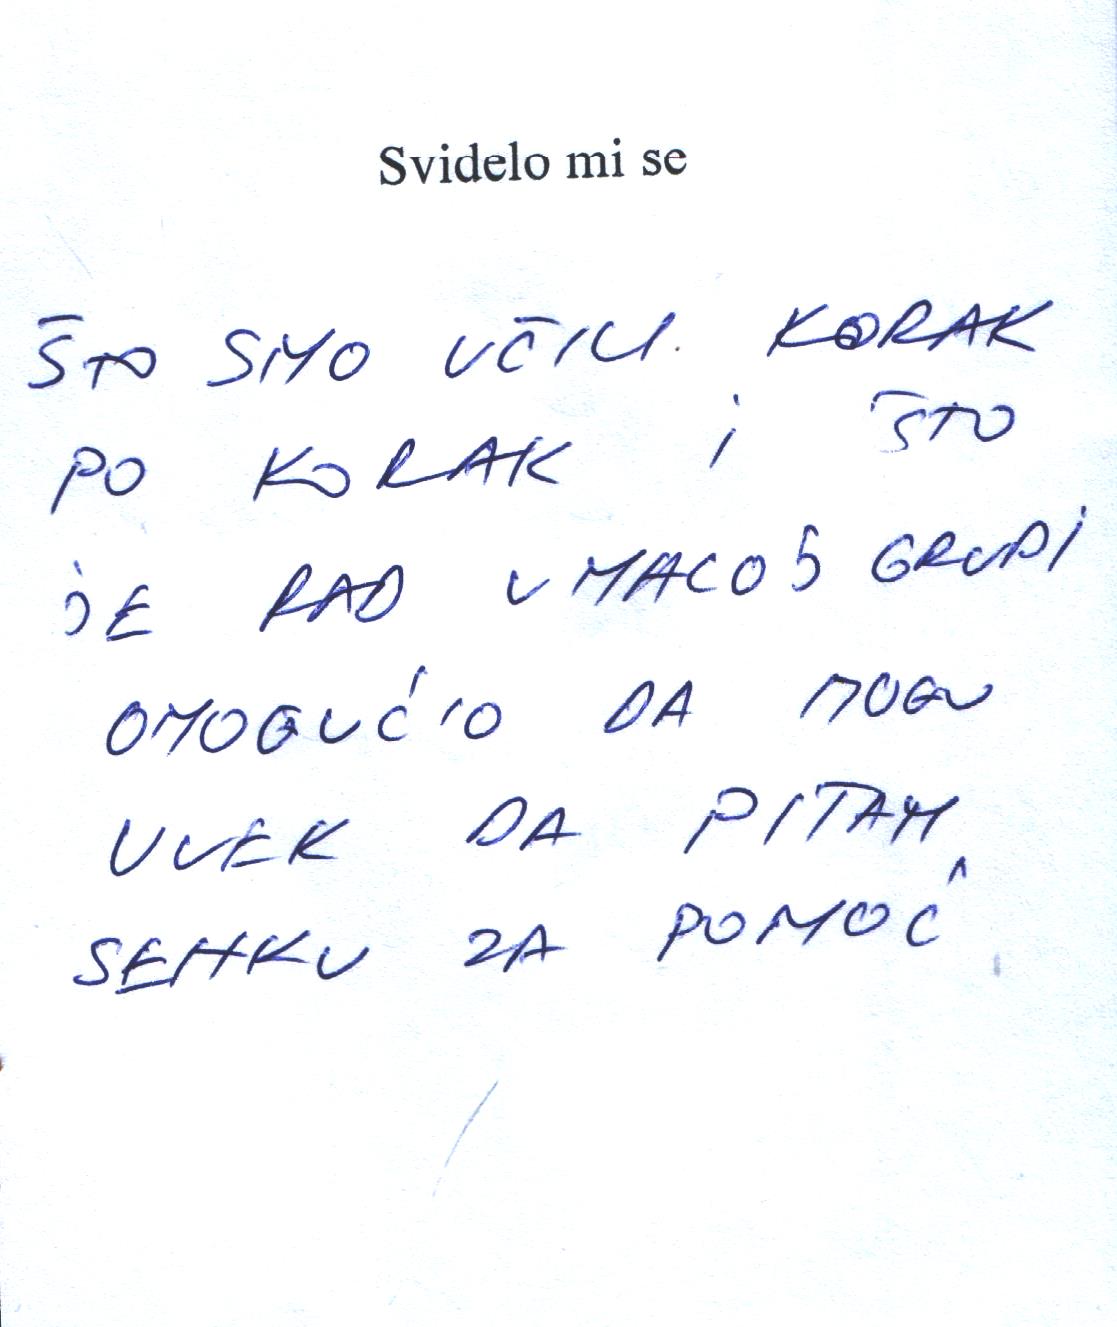 Svidelo mi se
ŠTO SMO UČILI KORAK
PO KORAK i ŠTO
JE RAD U MALOJ GRUPI
OMOGUĆIO DA MOGU
UVEK DA PITAM
SENKU ZA POMOĆ